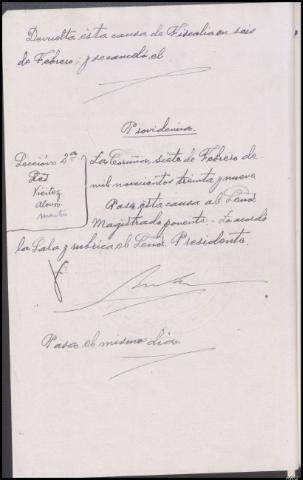 Devuelta esta causa de Fiscalia en seis
de Febrero; y se acordó el
Providencia
Sección 2ª
Pte
Vieitez
Alonso
La Coruña, siete de Febrero de
mil novecientos treinta y nueve
Pase esta causa al Señor
Magistrado ponente. Lo acordó
la Sala y rubrica el Señor Presidente.
Pasa el mismo dia